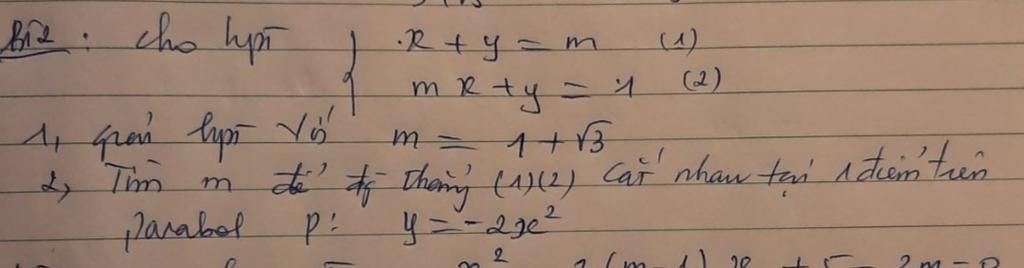 BT2: cho hpt { x + y = m (1)
mx + y = 1 (2)
1, giải hpt với m = 1 + √3
2, Tìm m để đg thẳng (1)(2) cắt nhau tại 1 điểm trên
parabol P: y = -2x²